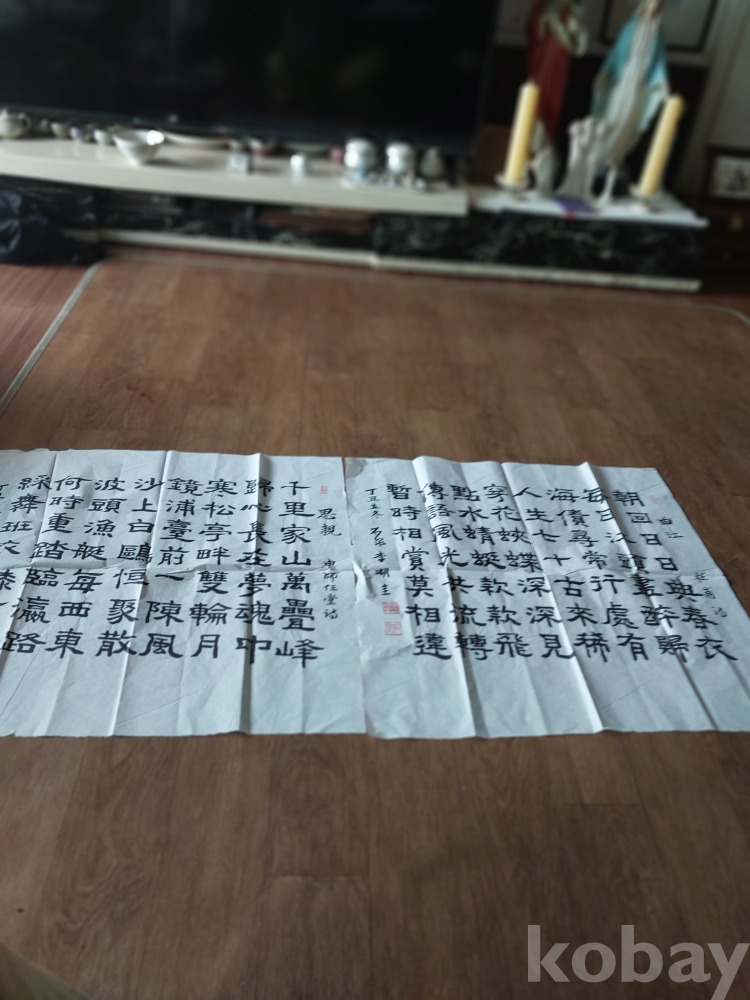 曲江
杜甫詩
朝回日日典春衣
每日江頭盡醉歸
酒債尋常行處有
人生七十古來稀
穿花蛺蝶深深見
點水蜻蜓款款飛
傳語風光共流轉
暫時相賞莫相違
思親
申師任堂詩
千里家山萬疊峰
歸心長在夢魂中
寒松亭畔雙輪月
鏡浦臺前一陳風
沙上白鷗恒聚散
波頭漁艇每西東
何時重踏臨瀛路
綵舞班衣膝下
kobay